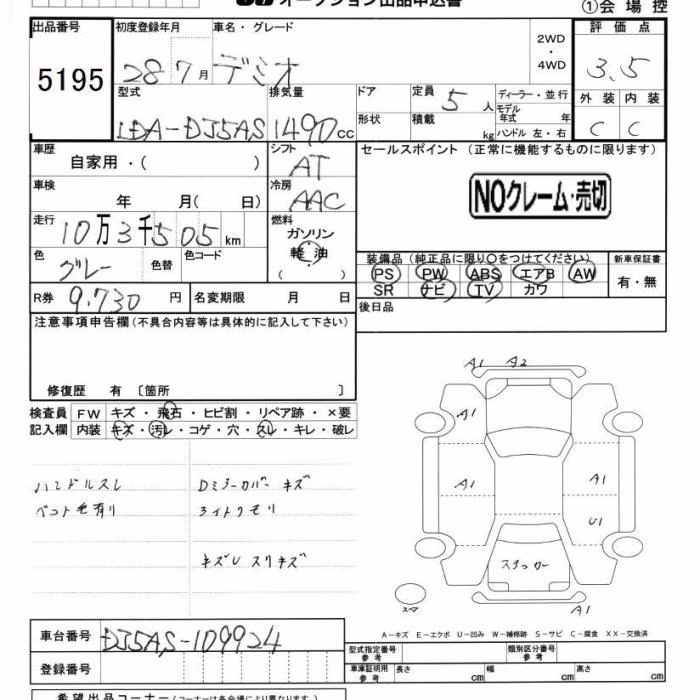 オークション出品申込書
①会場控
出品番号
5195
初度登録年月
28 7月
車名・グレード
デミオ
2WD
・
4WD
評価点
3.5
外装 内装
C C
型式
LDA-DJ5AS
排気量
1490cc
ドア
形状
定員 5人
積載 kg
ディーラー・並行
モデル年式 年
ハンドル 左・右
車歴
自家用・( )
シフト
AT
車検
年 月( 日)
冷房
AAC
走行
10万3千505km
燃料
ガソリン
軽油
( )
色
グレー
色替
色コード
R券 9,730円
名変期限 月 日
セールスポイント (正常に機能するものに限ります)
NOクレーム・売切
装備品 (純正品に限り○をつけてください)
PS PW ABS エアB AW
SR ナビ TV カワ
新車保証書
有・無
後日品
注意事項申告欄(不具合内容等は具体的に記入して下さい)
修復歴 有〔箇所 〕
検査員記入欄
FW キズ・飛石・ヒビ割・リペア跡・×要
内装 キズ・汚レ・コゲ・穴・スレ・キレ・破レ
ハンドルスレ
ペット毛有り
Dミラーカバー キズ
ライトクモリ
キズU スリキズ
A1 A2
A1
A1
A1
U1
ステッカー
A1
スペア
A-キズ E-エクボ U-凹み W-補修跡 S-サビ C-腐食 XX-交換済
車台番号
DJ5AS-109924
登録番号
型式指定番号
参考
類別区分番号
参考
車庫証明用
参考
長さ cm
幅 cm
高さ cm
希望出品コーナー(コーナーは各会場により異なります。)